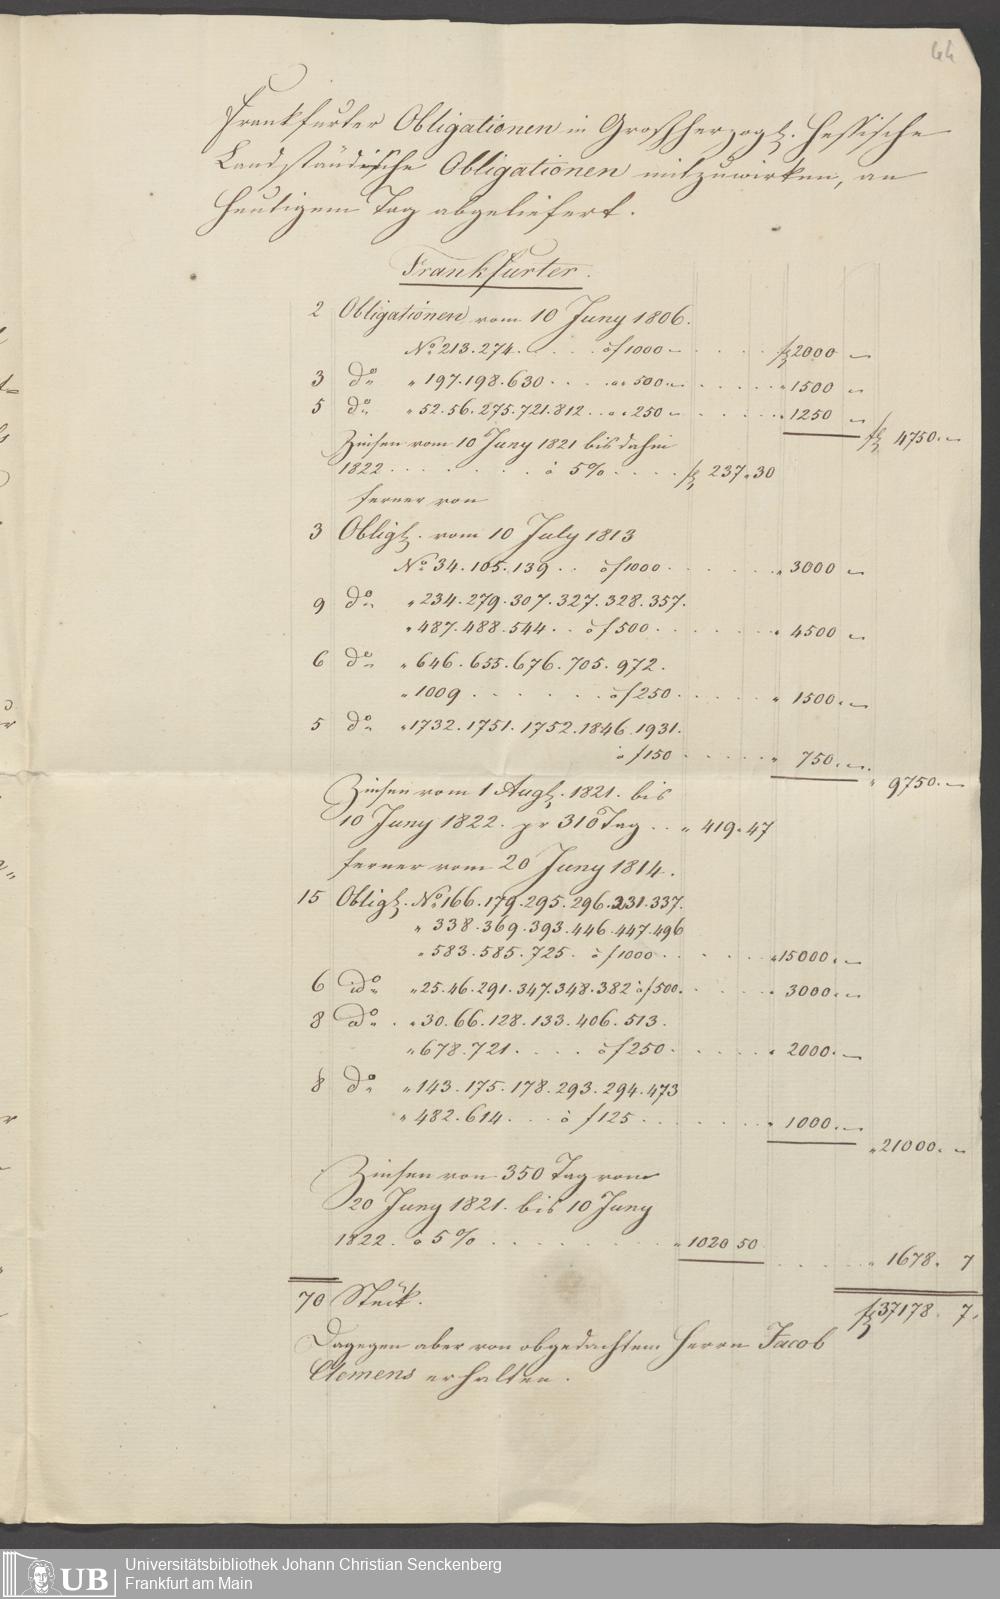 44
Frankfurter Obligationen in Großherzogl. Hessische
Landständische Obligationen mitzuwirken, an
heutigem Tag abgeliefert.
Frankfurter.
2 Obligationen vom 10 Juny 1806.
No. 213. 274. . . . . à f 1000 – . . . . f 2000 –
3 do. " 197. 198. 630 . . . . " " 500 – . . . . . " 1500 –
5 do. " 52. 56. 275. 721. 812 . . " " 250 – . . . . . " 1250 –
f 4750. –
Zinsen vom 10 Juny 1821 bis dahin
1822 . . . . . . . à 5% . . . . f 237 " 30
ferner von
3 Obligt. vom 10 July 1813
No. 34. 105. 139 . . à f 1000 . . . . . " 3000 –
9 do. " 234. 279. 307. 327. 328. 357.
" 487. 488. 544 . . à f 500 . . . . . " 4500 –
6 do. " 646. 655. 676. 705. 972.
" 1009 . . . . . . à f 250 . . . . . " 1500. –
5 do. " 1732. 1751. 1752. 1846. 1931.
à f 150 . . . . . " 750. –
" 9750. –
Zinsen vom 1 Augt. 1821. bis
10 Juny 1822. pr 310 Tag . . " 419 " 47
ferner vom 20 Juny 1814.
15 Obligt. No. 166. 179. 295. 296. 331. 337.
" 338. 369. 393. 446. 447. 496
" 583. 585. 725. à f 1000 . . . . . " 15000. –
6 do. " 25. 46. 291. 347. 348. 382 à f 500. . . . . " 3000. –
8 do. . " 30. 66. 128. 133. 406. 513.
" 678. 721 . . . . à f 250 . . . . . " 2000. –
8 do. " 143. 175. 178. 293. 294. 473
" 482. 614. . . . à f 125 . . . . . " 1000. –
" 21000. –
Zinsen von 350 Tag vom
20 Juny 1821. bis 10 Juny
1822. à 5% . . . . . . . " 1020 50
. . . . . " 1678. 7
70 Stück.
f 37178. 7.
Dagegen aber von obgedachtem Herrn Jacob
Clemens erhalten.
UB
Universitätsbibliothek Johann Christian Senckenberg
Frankfurt am Main